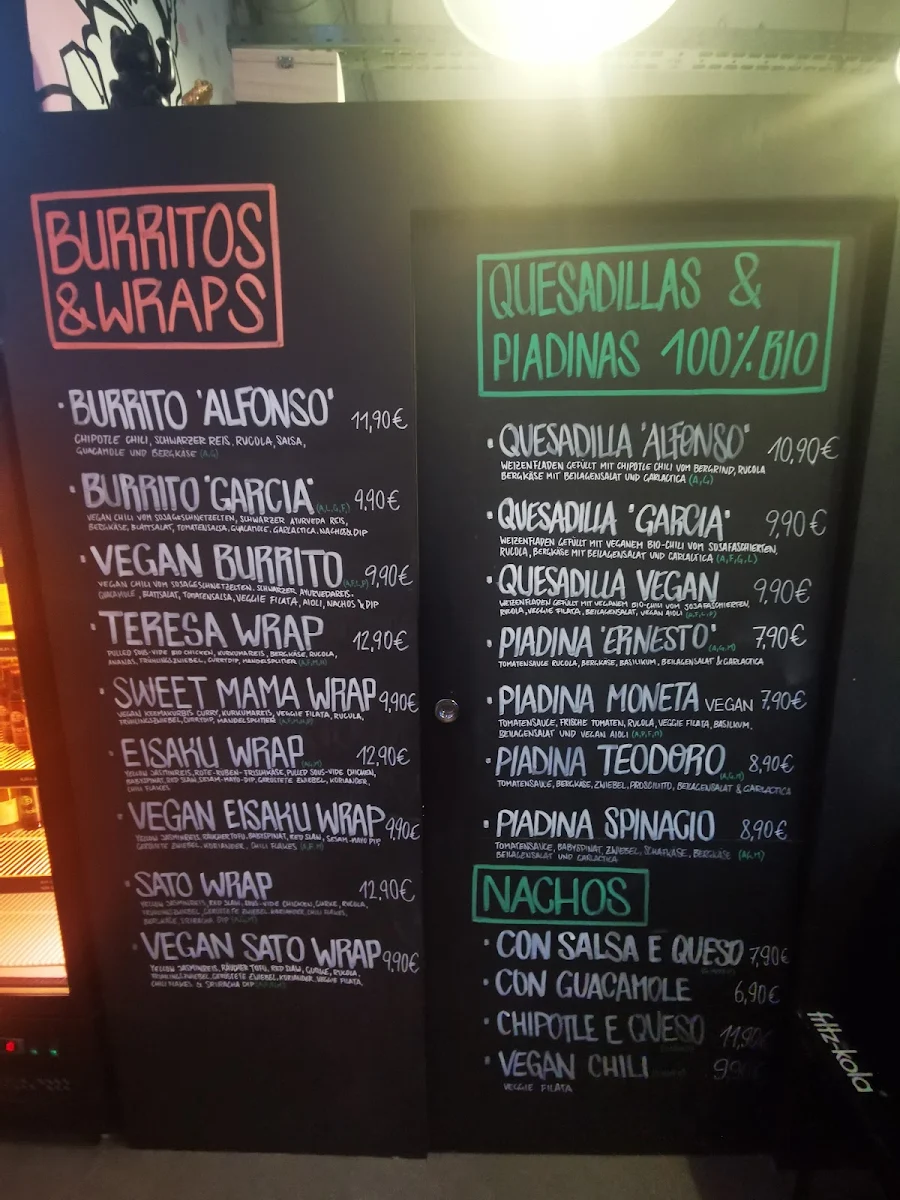 BURRITOS
& WRAPS
· BURRITO 'ALFONSO' 11,90€
CHIPOTLE CHILI, SCHWARZER REIS, RUCOLA, SALSA,
GUACAMOLE UND BERGKÄSE (A,G)
· BURRITO "GARCIA" (A,L,G,F) 9,90€
VEGAN CHILI VOM SOJAGESCHNETZELTEN, SCHWARZER AYURVEDA REIS,
BERGKÄSE, BLATTSALAT, TOMATENSALSA, GUACAMOLE, GARLACTICA, NACHOS & DIP
· VEGAN BURRITO 9,90€
VEGAN CHILI VOM SOJAGESCHNETZELTEN, SCHWARZER AYURVEDAREIS,
GUACAMOLE, BLATTSALAT, TOMATENSALSA, VEGGIE FILATA, AIOLI, NACHOS & DIP
· TERESA WRAP 12,90€
PULLED SOUS-VIDE BIO CHICKEN, KURKUMAREIS, BERGKÄSE, RUCOLA,
ANANAS, FRÜHLINGSZWIEBEL, CURRYDIP, MANDELSPLITTER
· SWEET MAMA WRAP 9,90€
VEGAN KERMAKÜRBIS CURRY, KURKUMAREIS, VEGGIE FILATA, RUCOLA,
FRÜHLINGSZWIEBEL, CURRYDIP, MANDELSPLITTER
· EISAKU WRAP 12,90€
YELLOW JASMINREIS, ROTE-RUBEN-FRISCHKÄSE, PULLED SOUS-VIDE CHICKEN,
BABYSPINAT, RED SLAW, SESAM-MAYO-DIP, GERÖSTETE ZWIEBEL, KORIANDER,
CHILI FLAKES
· VEGAN EISAKU WRAP 9,90€
YELLOW JASMINREIS, RÄUCHERTOFU, BABYSPINAT, RED SLAW, SESAM-MAYO DIP
GERÖSTETE ZWIEBEL, KORIANDER, CHILI FLAKES
· SATO WRAP 12,90€
YELLOW JASMINREIS, RED SLAW, SOUS-VIDE CHICKEN, GURKE, RUCOLA,
FRÜHLINGSZWIEBEL, GERÖSTETE ZWIEBEL, KORIANDER, CHILI FLAKES,
BERGKÄSE, SRIRACHA DIP
· VEGAN SATO WRAP 9,90€
YELLOW JASMINREIS, RÄUCHER TOFU, RED SLAW, GURKE, RUCOLA,
FRÜHLINGSZWIEBEL, GERÖSTETE ZWIEBEL, KORIANDER, VEGGIE FILATA,
CHILI FLAKES & SRIRACHA DIP
QUESADILLAS &
PIADINAS 100% BIO
· QUESADILLA 'ALFONSO" 10,90€
WEIZENFLADEN GEFÜLLT MIT CHIPOTLE CHILI VOM BERGRIND, RUCOLA
BERGKÄSE MIT BEILAGENSALAT UND GARLACTICA (A,G)
· QUESADILLA "GARCIA" 9,90€
WEIZENFLADEN GEFÜLLT MIT VEGANEM BIO-CHILI VOM SOJAFASCHIERTEN,
RUCOLA, BERGKÄSE MIT BEILAGENSALAT UND GARLACTICA (A,F,G,L)
· QUESADILLA VEGAN 9,90€
WEIZENFLADEN GEFÜLLT MIT VEGANEM BIO-CHILI VOM SOJAFASCHIERTEN,
RUCOLA, VEGGIE FILATA, BEILAGENSALAT, VEGAN AIOLI
· PIADINA 'ERNESTO' (A,G,M) 7,90€
TOMATENSAUCE RUCOLA, BERGKÄSE, BASILIKUM, BEILAGENSALAT & GARLACTICA
· PIADINA MONETA VEGAN 7,90€
TOMATENSAUCE, FRISCHE TOMATEN, RUCOLA, VEGGIE FILATA, BASILIKUM,
BEILAGENSALAT UND VEGAN AIOLI
· PIADINA TEODORO (A,G,M) 8,90€
TOMATENSAUCE, BERGKÄSE, ZWIEBEL, PROSCIUTTO, BEILAGENSALAT & GARLACTICA
· PIADINA SPINACIO 8,90€
TOMATENSAUCE, BABYSPINAT, ZWIEBEL, SCHAFKÄSE, BERGKÄSE (A,G,M)
BEILAGENSALAT UND GARLACTICA
NACHOS
· CON SALSA E QUESO 7,90€
· CON GUACAMOLE 6,90€
· CHIPOTLE E QUESO 11,90€
· VEGAN CHILI
VEGGIE FILATA
fritz-kola